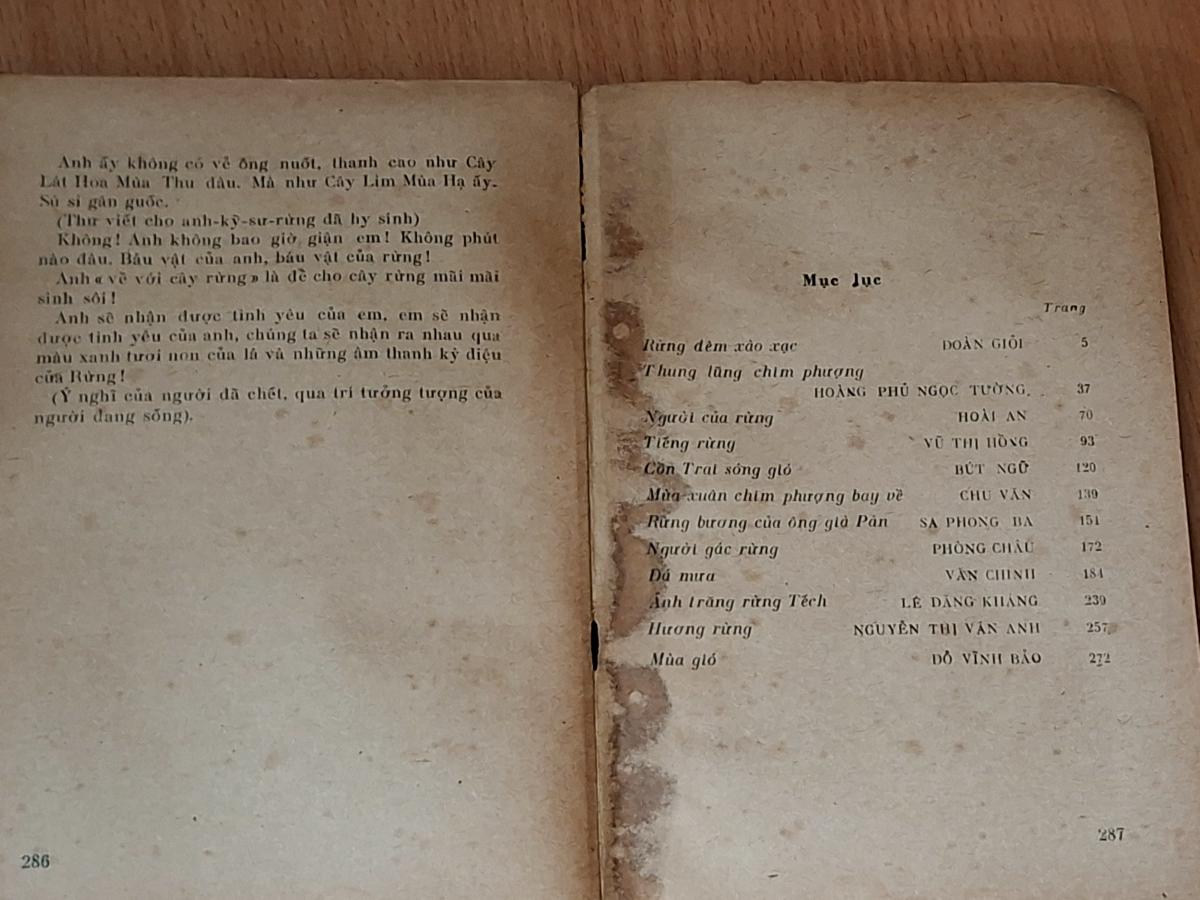 Anh ấy không có vẻ ông nuốt, thanh cao như Cây
Lát Hoa Mùa Thu đâu. Mà như Cây Lim Mùa Hạ ấy.
Sù sì gân guốc.
(Thư viết cho anh-kỹ-sư-rừng đã hy sinh)
Không! Anh không bao giờ giận em! Không phút
nào đâu. Báu vật của anh, báu vật của rừng!
Anh « về với cây rừng » là để cho cây rừng mãi mãi
sinh sôi!
Anh sẽ nhận được tình yêu của em, em sẽ nhận
được tình yêu của anh, chúng ta sẽ nhận ra nhau qua
màu xanh tươi non của lá và những âm thanh kỳ diệu
của Rừng!
(Ý nghĩ của người đã chết, qua trí tưởng tượng của
người đang sống).
286
Mục lục
Trang
Rừng đêm xào xạc ĐOÀN GIỎI 5
Thung lũng chim phượng
HOÀNG PHỦ NGỌC TƯỜNG. 37
Người của rừng HOÀI AN 70
Tiếng rừng VŨ THỊ HỒNG 93
Cồn Trai sóng gió BÚT NGỮ 120
Mùa xuân chim phượng bay về CHU VĂN 139
Rừng bương của ông già Pản SA PHONG BA 151
Người gác rừng PHÒNG CHÂU 172
Đá mưa VĂN CHINH 184
Ánh trăng rừng Tếch LÊ ĐĂNG KHÁNG 239
Hương rừng NGUYỄN THỊ VÂN ANH 257
Mùa gió ĐỖ VĨNH BẢO 272
287